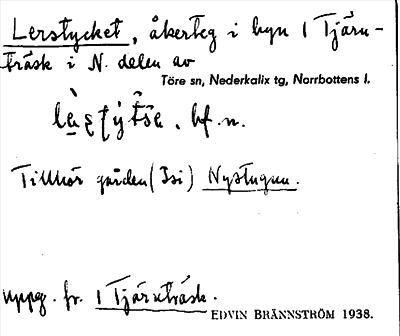 Lerstycket, åkerteg i byn 1 Tjärn-
träsk i N. delen av
Töre sn, Nederkalix tg, Norrbottens l.
bf. n.
Tillhör gården (Isi) Nystugun.
uppg. fr. 1 Tjärnträsk.
EDVIN BRÄNNSTRÖM 1938.